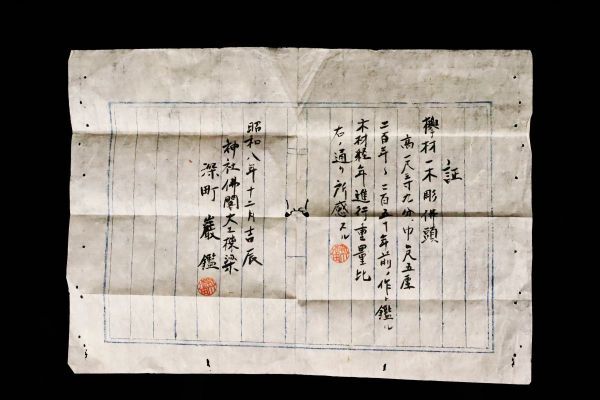 証
欅材一木彫佛頭
高一尺三寸九分、巾一尺五厘
二百年〜二百五十年前ノ作ト鑑ル
木材経年進行重量比
右ノ通リ所感スル
昭和八年十二月吉辰
神社佛閣大工棟梁
深町巌鑑